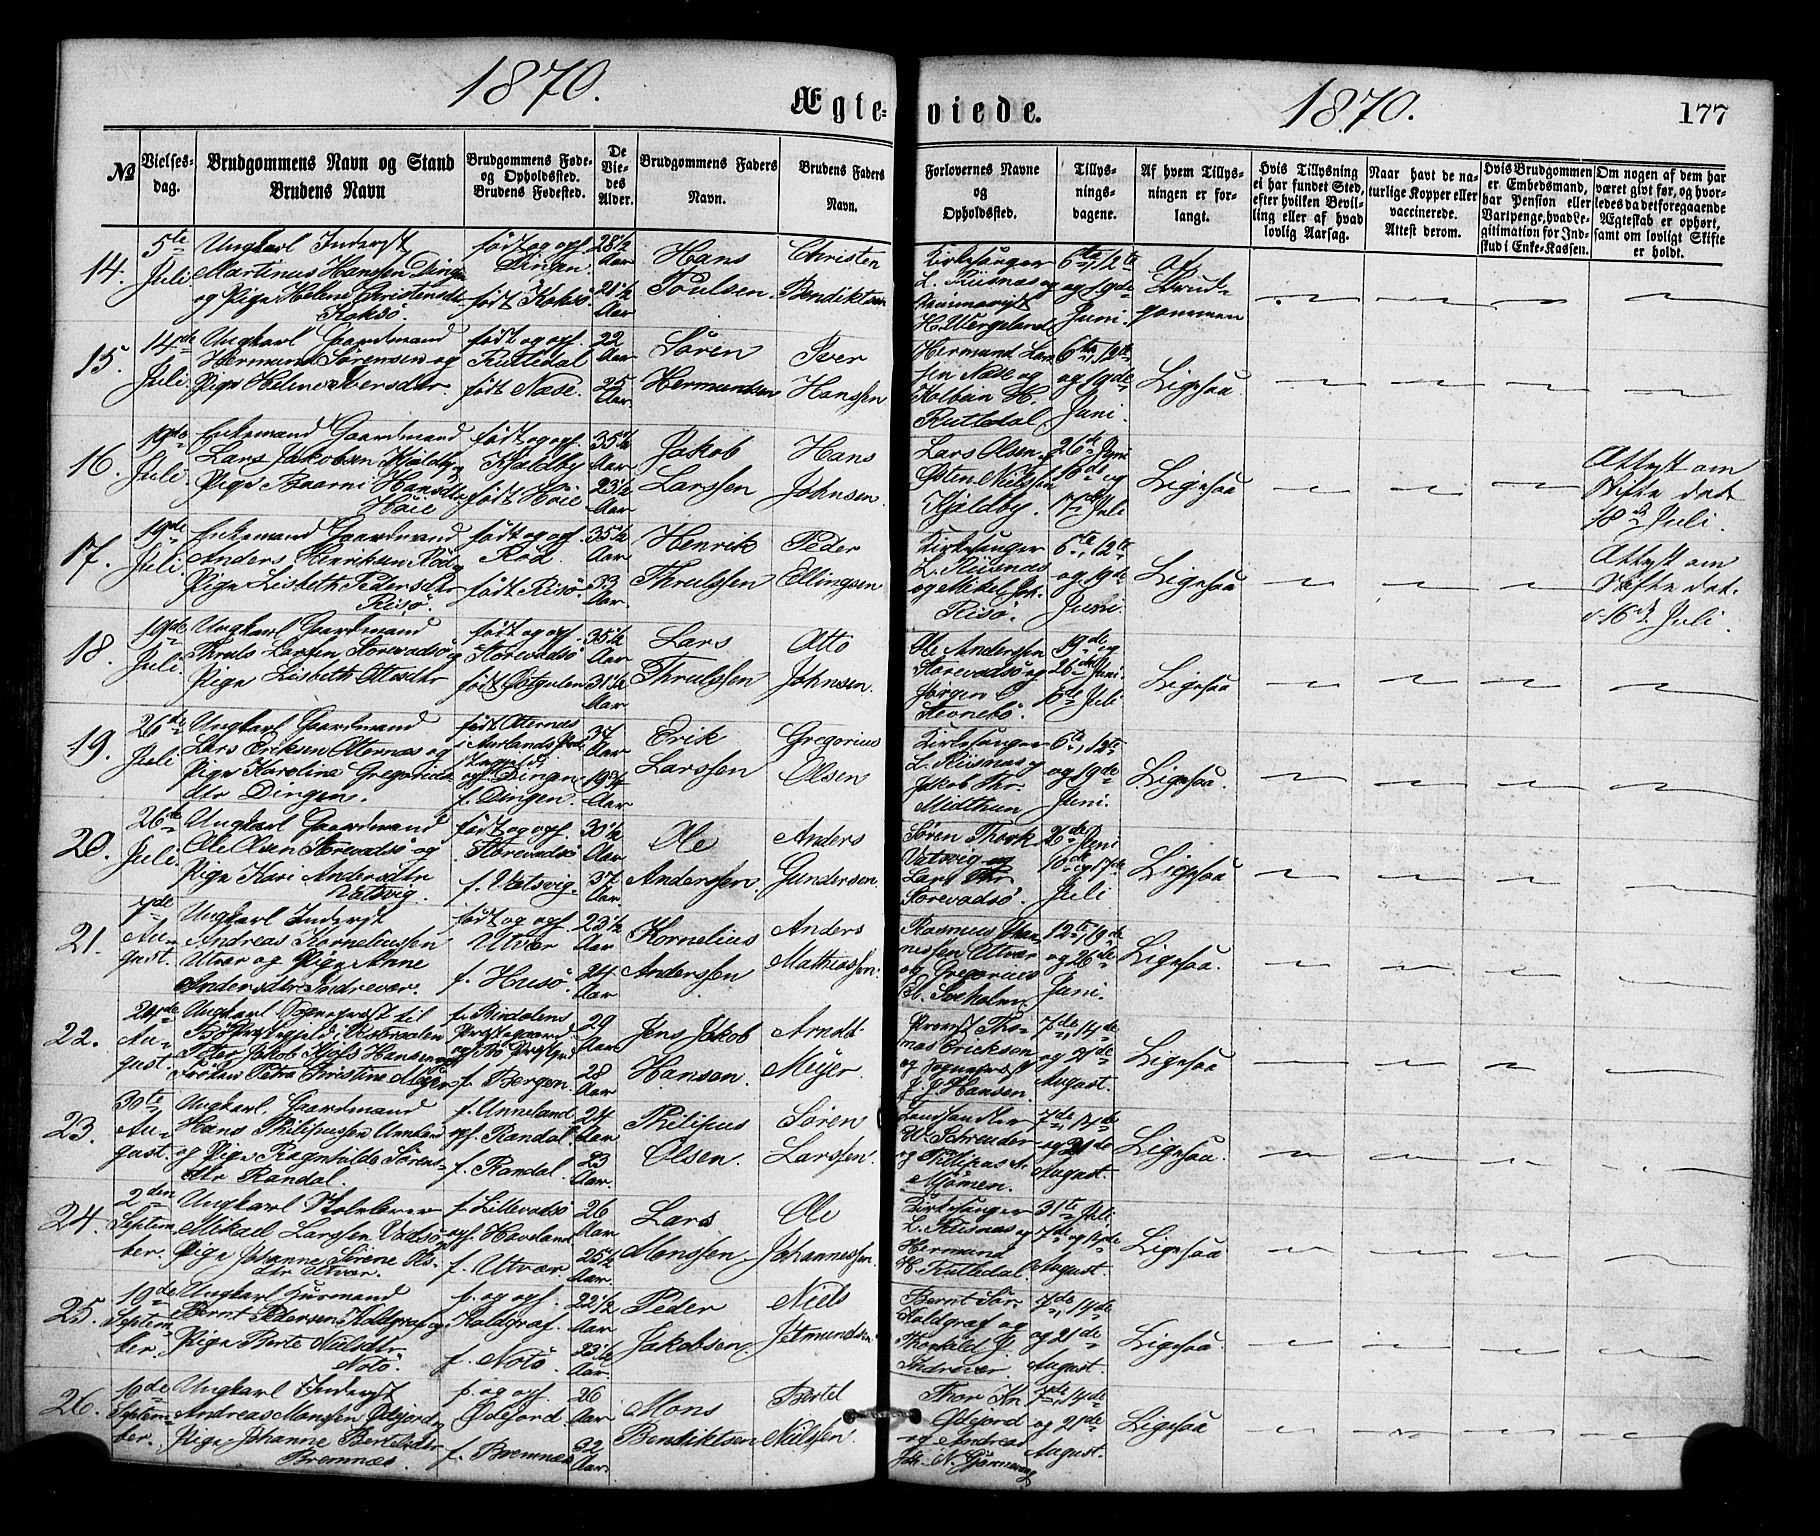 1870.
Ægteviede.
1870.
177
№
Vielses-
dag.
Brudgommens Navn og Stand
Brudens Navn
Brudgommens Føde-
og Opholdssted.
Brudens Fødested.
De
Vie-
des
Alder.
Brudgommens Faders
Navn.
Brudens Faders
Navn.
Forlovernes Navne
og
Opholdssted.
Tillys-
nings-
dagene.
Af hvem Tillys-
ningen er for-
langt.
Hvis Tillysning
ei har fundet Sted,
efter hvilken Bevil-
ling eller af hvad
lovlig Aarsag.
Naar havt de na-
turlige Kopper eller
vaccinerede.
Attest derom.
Hvis Brudgommen
er Embedsmand,
har Pension eller
Vartpenge, hvad Le-
gitimation for Ind-
skud i Enke-Kassen.
Om nogen af dem har
været givt før, og hvor-
ledes da det foregaaende
Ægteskab er ophørt,
samt om lovligt Skifte
er holdt.
14.
5te
Juli
Ungkarl Inderst
Martinus Hanssen Dingen
og Pige Helene Christensdtr
Koksø.
født og opf.
Dingen.
født Koksø
28½
Aar
21½
Aar
Hans
Poulsen
Christen
Bendiktsen
Kirkesanger
L. Riisnæs og
H. Wergeland
6te, 12te
og 19de
Juni.
af
Brud-
gommen
15.
14de
Juli
Ungkarl Gaardmand
Hermund Sørensen og
Pige Helene Iversdtr.
født og opf.
Rutledal
født Nåse.
22
Aar
25
Aar.
Søren
Hermundsen
Iver
Hanssen
Hermund Lars
sen Nåse og
Kolbein H.
Rutledal
6te, 12te
og 19de
Juni.
Ligesaa
16.
19de
Juli.
Enkemand Gaardmand
Lars Jakobsen Kjeldby
Pige Baarni Hansdtr
Høie
født og opf.
Kjeldby
født Høie
35½
Aar
23½
Aar
Jakob
Larssen
Hans
Johnsen
Lars Olsen og
Østen Nielssen
Kjeldby.
26de Juni
10de og
17de Juli
Ligesaa
Attest om
Skifte dat.
18de Juli.
17.
19de
Juli.
Enkemand Gaardmand
Anders Henriksen Röd og
Pige Lisbeth Pedersdtr
Risø.
født og opf.
Röd
født Risø
35½
Aar
33
Aar.
Henrik
Thrulssen
Peder
Ellingsen
Kirkesanger
L. Riisnæs
og Mikel Joh.
Risø.
6te, 12te
og 19de
Juni
Ligesaa
Attest om
Skifte dat.
16de Juli.
18.
19de
Juli
Ungkarl Gaardmand
Thruls Larssen Storevadsø og
Pige Lisbeth Ottosdtr
født og opf.
Storevadsø
født Østgulen
35½
Aar
31½
Aar
Lars
Thrulssen
Otto
Johnsen.
Ole Anderssen
Storevadsø og
Jørgen O.
Stevnebø.
19de og
26de Juni
10de Juli
Ligesaa
19.
26de
Juli
Ungkarl Gaardmand
Lars Eriksen Oternæs og
Pige Karoline Gregorius-
dtr Dingen.
født Oternæs
i Aurlands Præ-
stegjeld
opf. Dingen
f. Dingen.
34
Aar
19¾
Aar
Erik
Larssen
Gregorius
Olsen
Kirkesanger
L. Riisnæs og
Jakob Thr.
Midthun
6te, 12te
og 19de
Juni.
Ligesaa.
20.
26de
Juli
Ungkarl Gaardmand
Ole Olsen Storevadsø og
Pige Kari Andersdtr
Vatsvig.
født og opf.
Storevadsø
f. Vatsvig.
30½
Aar
37
Aar
Ole
Anderssen
Anders
Gundersen.
Søren Thork.
Vatsvig og
Lars Thr.
Storevadsø.
26de Juni
10de og 17de
Juli
Ligesaa
21.
7de
Au-
gust.
Ungkarl Inderst
Andreas Korneliussen
Utvær og Pige Anne
Andersdtr Indrevær.
født og opf.
Utvær
f. Husø.
23½
Aar
24
Aar
Kornelius
Anderssen
Anders
Mathiassen.
Rasmus Han-
nessen Utvær
og Gregorius
A. Solholm.
12te, 19de
og 26de
Juni.
Ligesaa.
22.
24de
Au-
gust.
Ungkarl Sogneprest til
Bø Prestegjeld i Vesteraalen
Peter Jakob Hjels Hansen og
Frøken Petra Christine Meyer
f. Rindalens
Prestegaard
og Bø Prestgd.
f. Bergen.
29
Aar
28
Aar
Jens Jakob
Hanson.
Arndt
Meyer
Provst Tho-
mas Erichsen
og Sogneprest
J. J. Hansen.
7de, 14de
og 21de
August.
Ligesaa
23.
30te
Au-
gust.
Ungkarl Gaardmand
Hans Philipussen Unneland
og Pige Ragnhilde Sørens-
dtr Randal.
f. Unneland
opf. Randal
f. Randal
24
Aar
23
Aar.
Philipus
Olsen.
Søren
Larssen.
Landhandler
W. Schreuder
og Phillipus A.
Mjømen.
7de, 14de
og 21de
August.
Ligesaa.
24.
2den
Septem-
ber.
Ungkarl Skolelærer
Mikael Larssen Vadsø og
Pige Johanne Sirene Ols-
dtr Utvær.
f. Lillevadsø
opf. Haveland
f. Utvær
26
Aar
25½
Aar.
Lars
Monssen
Ole
Johannessen.
Kirkesanger
L. Riisnæs og
Hermund
H. Rutledal.
31te Juli,
7de og 14de
August.
Ligesaa
25.
19de
Septem-
ber.
Ungkarl Huusmand
Bernt Pedersen Koldgraf og
Pige Berte Nielsdtr.
Notø.
f. og opf.
Koldgraf.
f. Notø
22½
Aar
23½
Aar.
Peder
Jakobsen.
Niels
Jetmundsen
Bernt Sør.
Koldgraf og
Thorvald J.
Indrevær
7de, 14de
og 21de
August.
Ligesaa.
26.
19de
Septem-
ber.
Ungkarl Inderst
Andreas Monssen Ødejord og
Pige Johanne Bertelsdtr
Bremnæs.
f. og opf.
Ødejord.
f. Bremnæs
26
Aar
32
Aar.
Mons
Bendiktsen
Bertel
Nielssen.
Thor Kn.
Ødejord
og Andreas
7de, 14de
og 21de
August.
Ligesaa